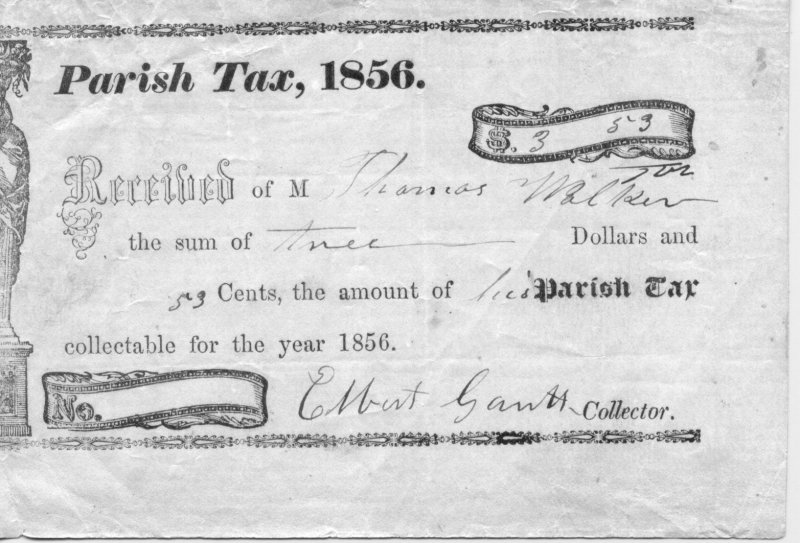 Parish Tax, 1856.
$. 3 53
Received of M Thomas Walker
the sum of three Dollars and
53 Cents, the amount of his Parish Tax
collectable for the year 1856.
No.
Elbert Gantt Collector.